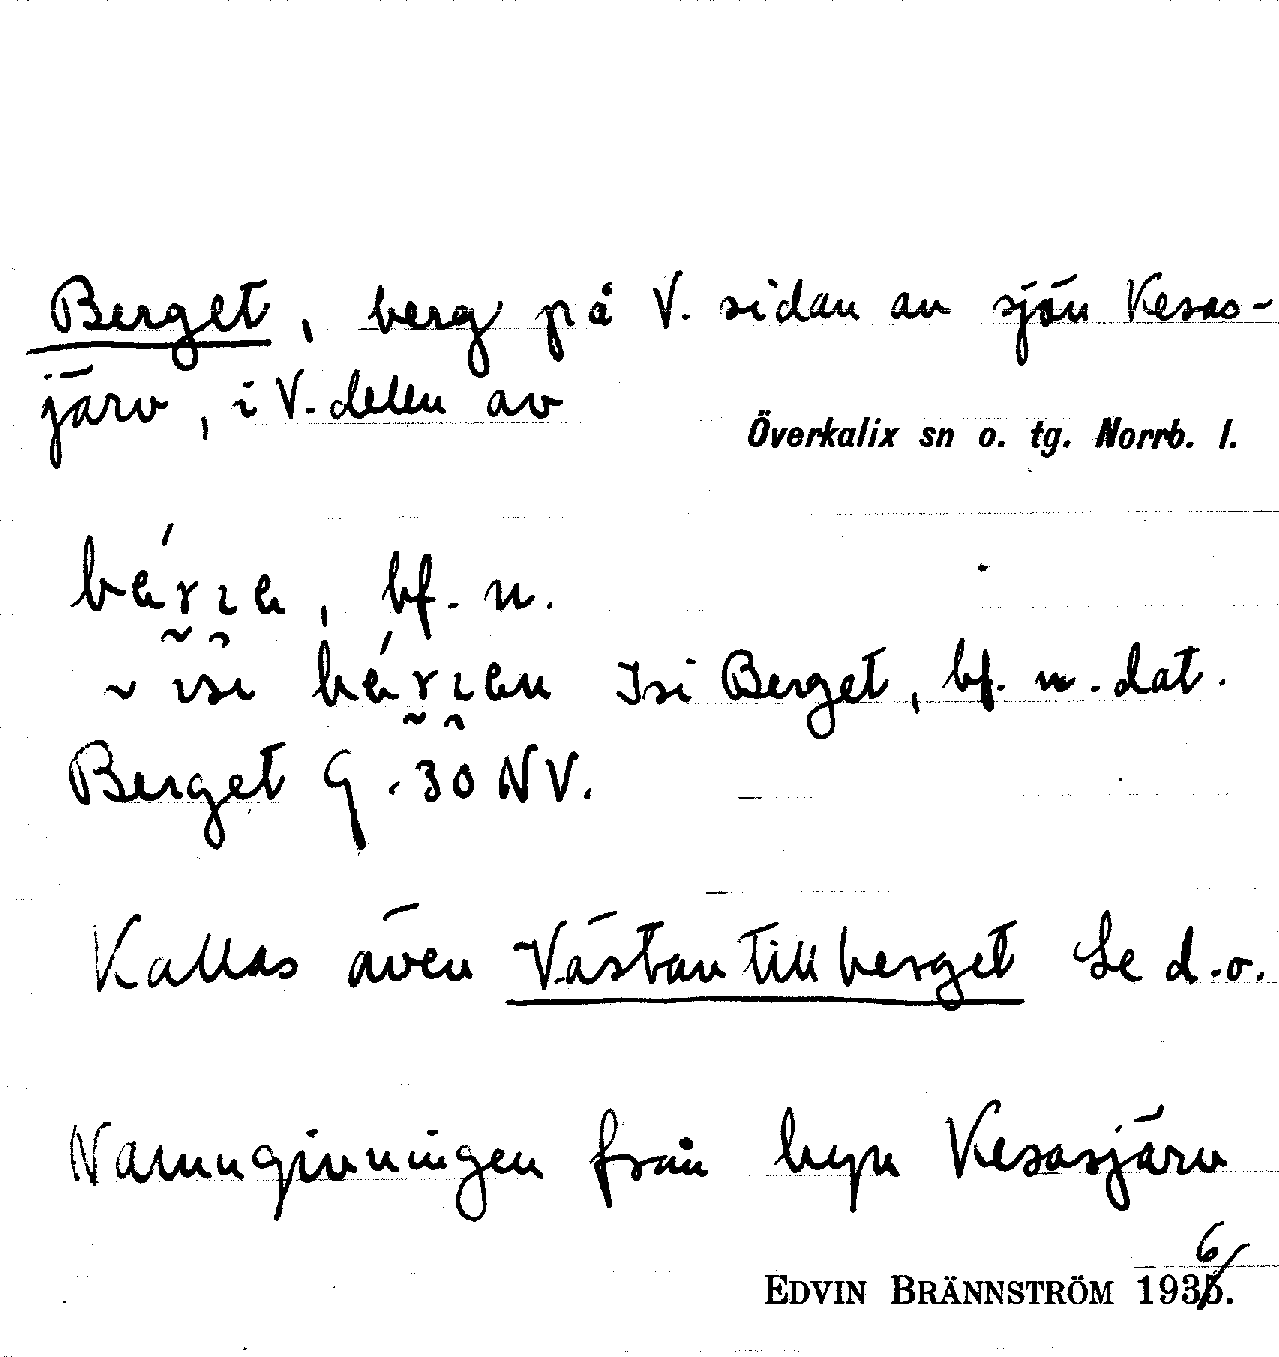 Berget, berg på V. sidan av sjön Kesas-
järv, i V. delen av
Överkalix sn o. tg. Norrb. l.
bf. n.
~ Isi Berget, bf. n. dat.
Berget 9 -30 NV.
Kallas även Västantillberget Se d.o.
Namngivningen från byn Kesasjärv
6
EDVIN BRÄNNSTRÖM 1935.